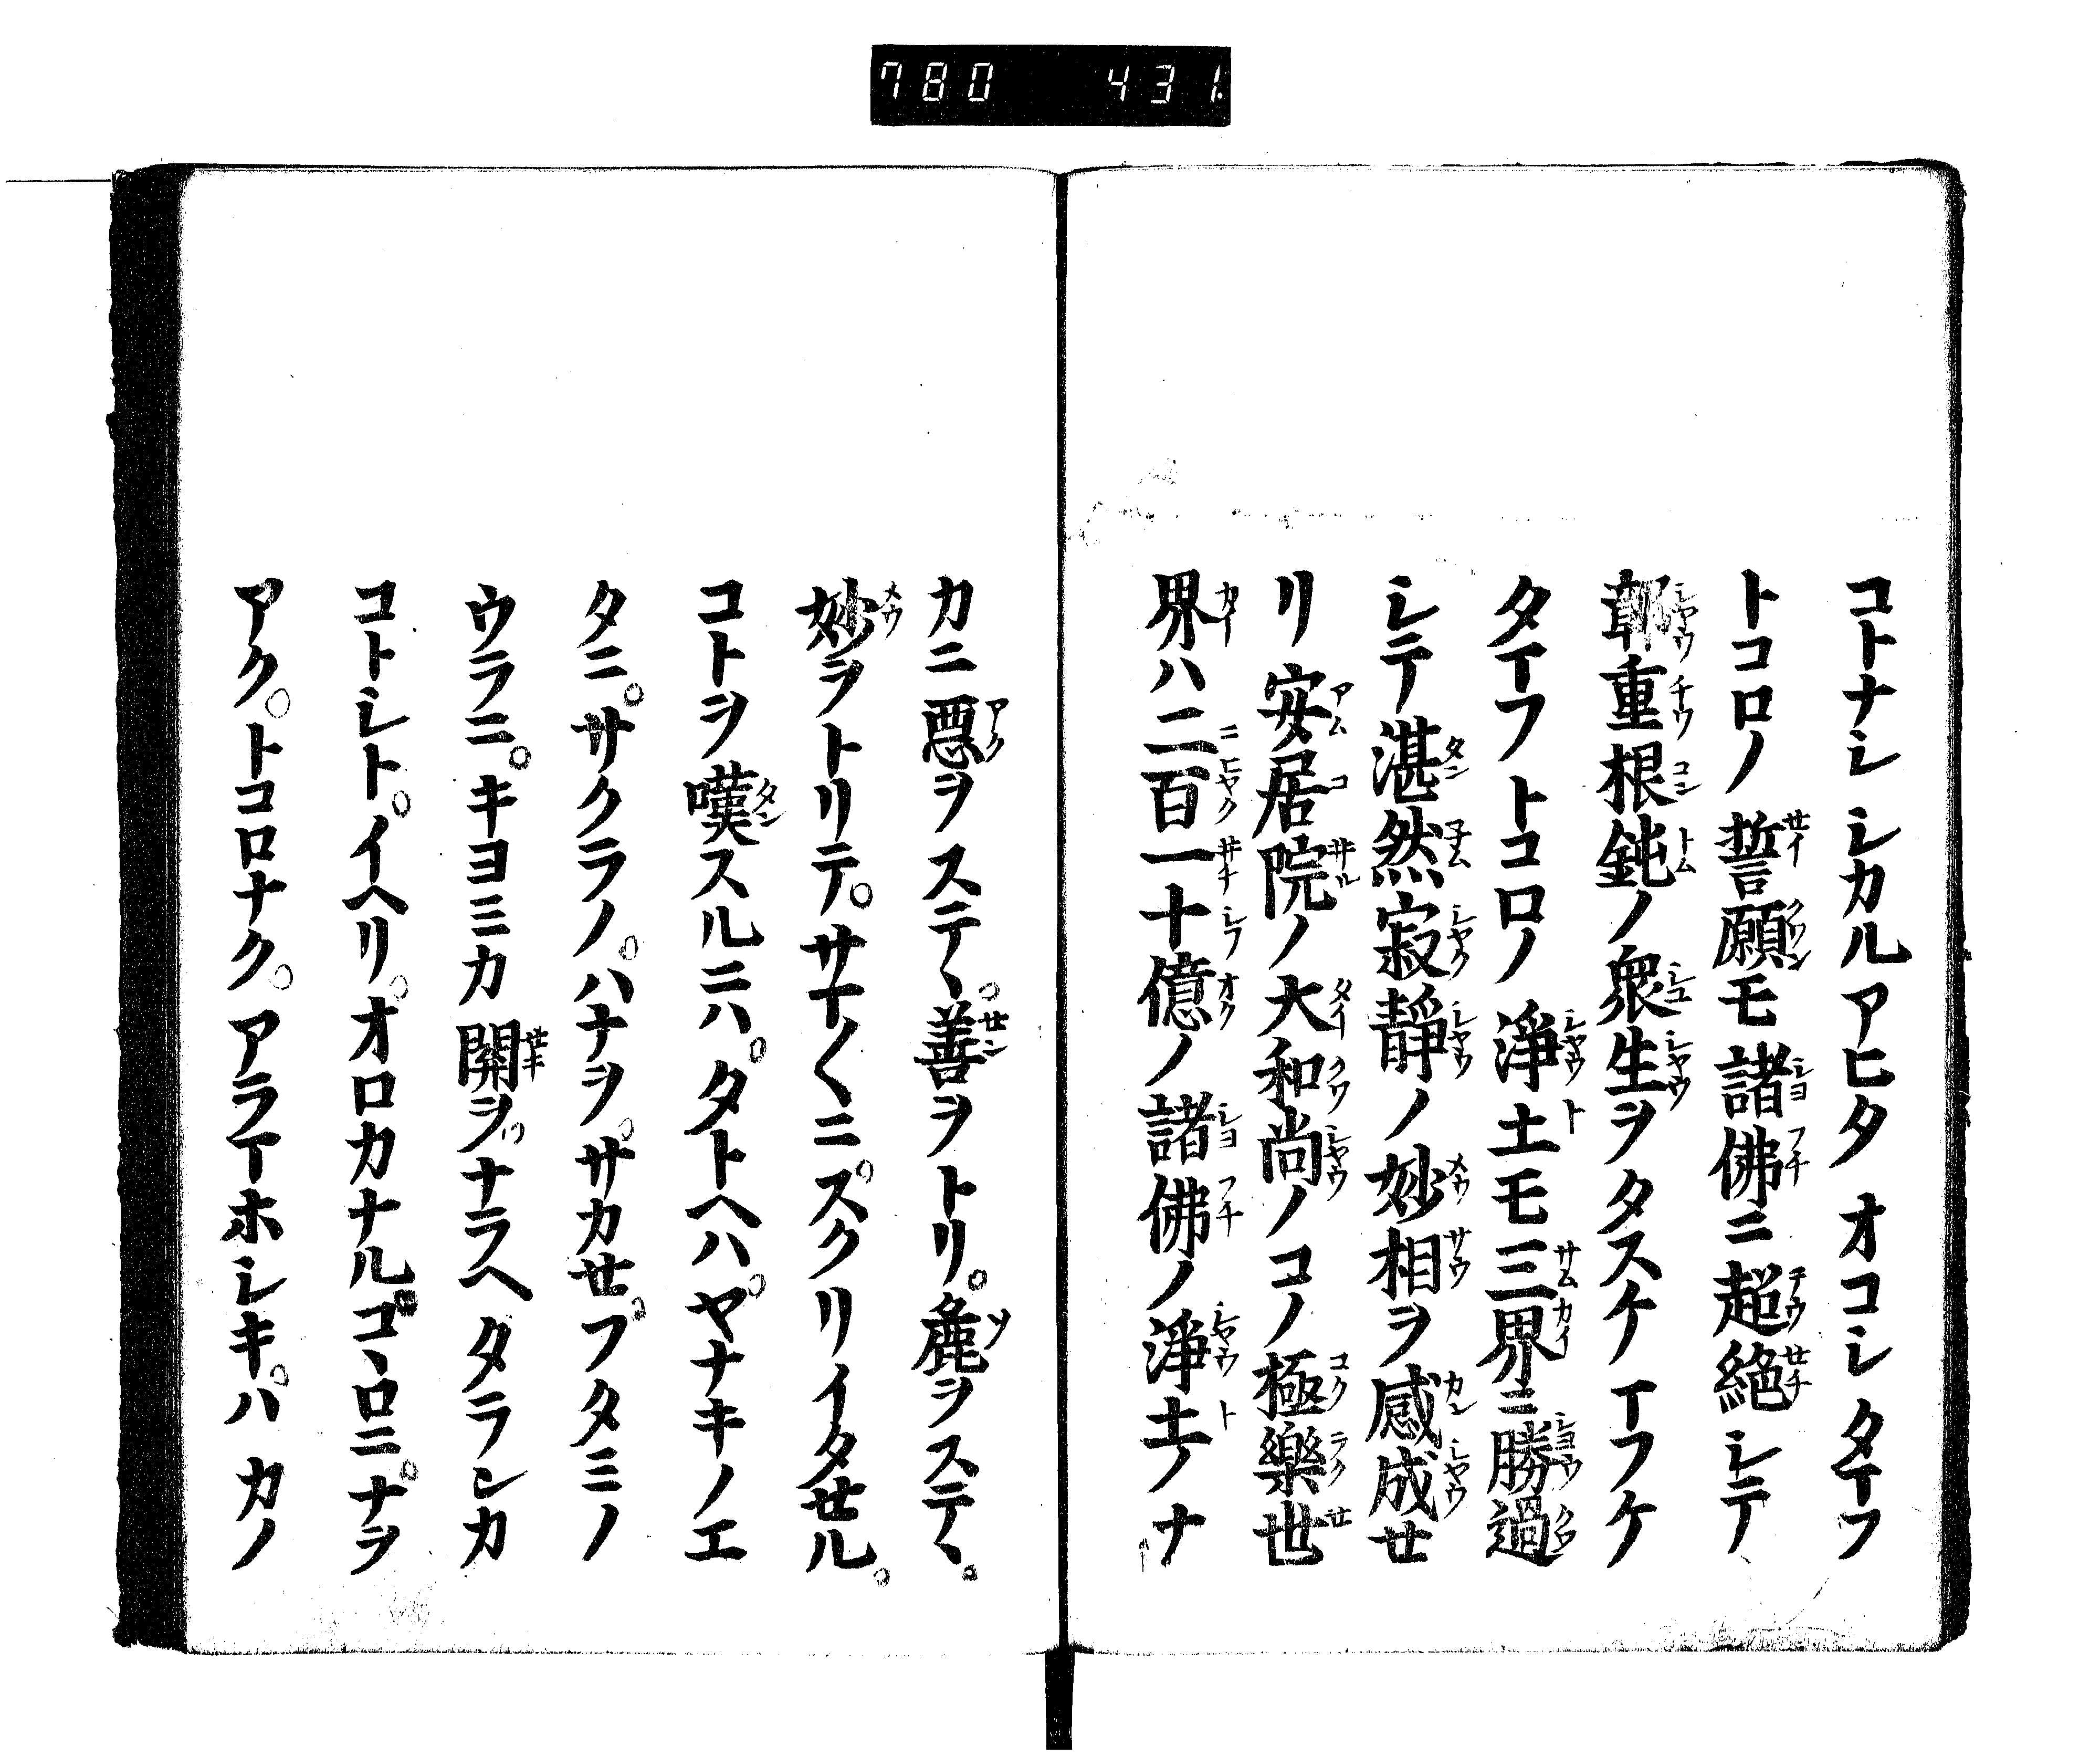 780 431
コトナシシカルアヒタオコシタマフ
トコロノ誓願モ諸佛ニ超絶シテ
鄣重根鈍ノ衆生ヲタスケマフケ
タマフトコロノ淨土モ三界ニ勝過
シテ湛然寂靜ノ妙相ヲ感成セ
リ安居院ノ大和尚ノコノ極樂世
界ハ二百一十億ノ諸佛ノ淨土ノナ
カニ惡ヲステヽ善ヲトリ。麁ヲステヽ。
妙ヲトリテ。サマ〱ニスクリイタセル。
コトヲ嘆スルニハ。タトヘハ。ヤナキノエ
タニ。サクラノ。ハナヲ。サカセ。フタミノ
ウラニ。キヨミカ關ヲ。ナラヘタラシカ
コトシト。イヘリ。オロカナル。コヽロニ。ナヲ
アク。トコロナク。アラマホシキ。ハカノ